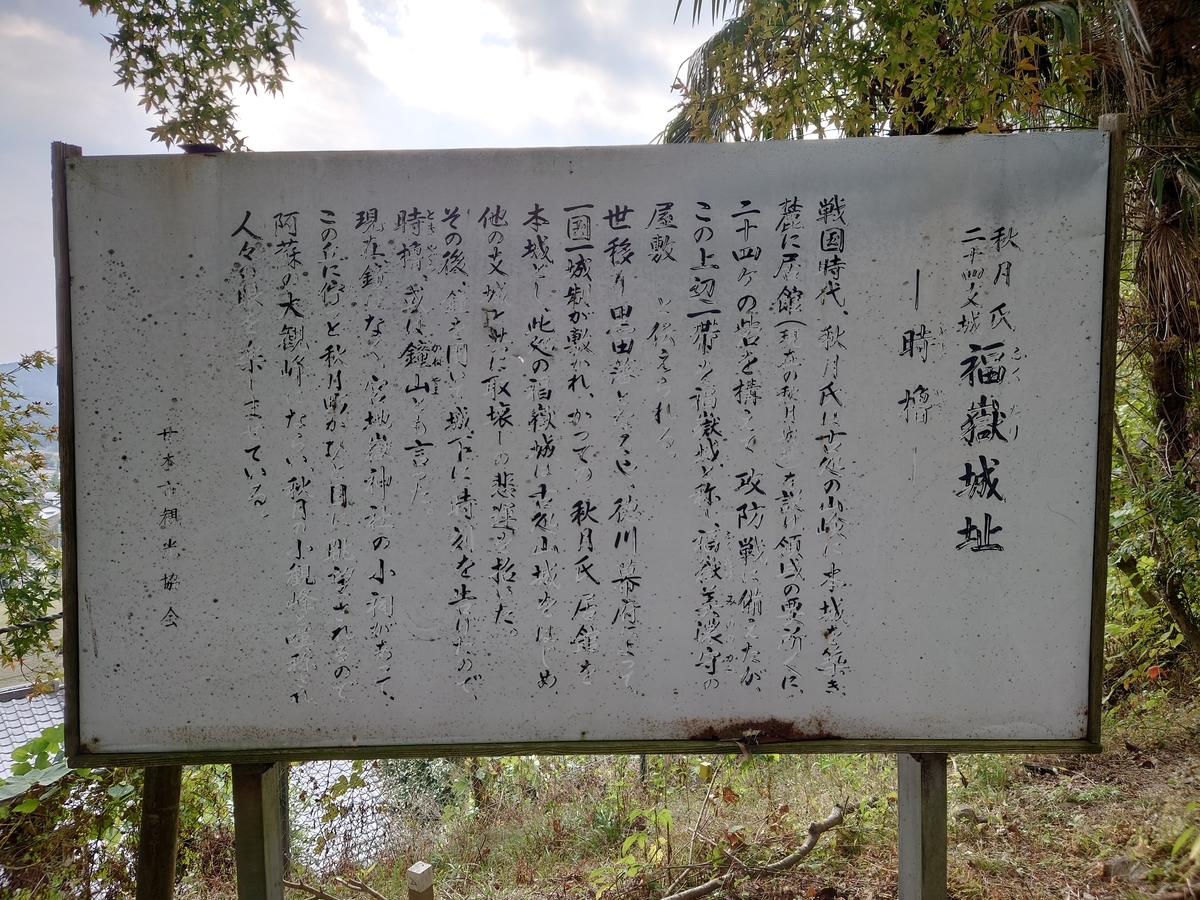 秋月氏
二十四支城 福嶽城址
ふく たけ
―時櫓―
戦国時代、秋月氏は古処の山嶺に本城を築き、
麓に居館(現在の秋月)を設け領域の要所々に、
二十四ヶの砦を構えて攻防戦に備えたが、
この上の辺一帯を福嶽城と称し福嶽美濃守の
みののかみ
屋敷 と伝えられる。
世移り黒田藩となるや、徳川幕府によって、
一国一城制が敷かれ、かつての秋月氏居館を
本城とし、此処の福嶽城は古処山城をはじめ
他の支城と共に取壊しの悲運を招いた。
その後、鐘を用い城下に時刻を告げたので、
時櫓、或は鐘山とも言った。
とき やぐら
かね
現在鐘はなく宮地嶽神社の小祠があって、
この丘に佇むと秋月町がひと目に眺望されるので
阿蘇の大観峰にならい秋月の小観峰と呼称され
人々の眼を楽しませている。
甘木市観光協会